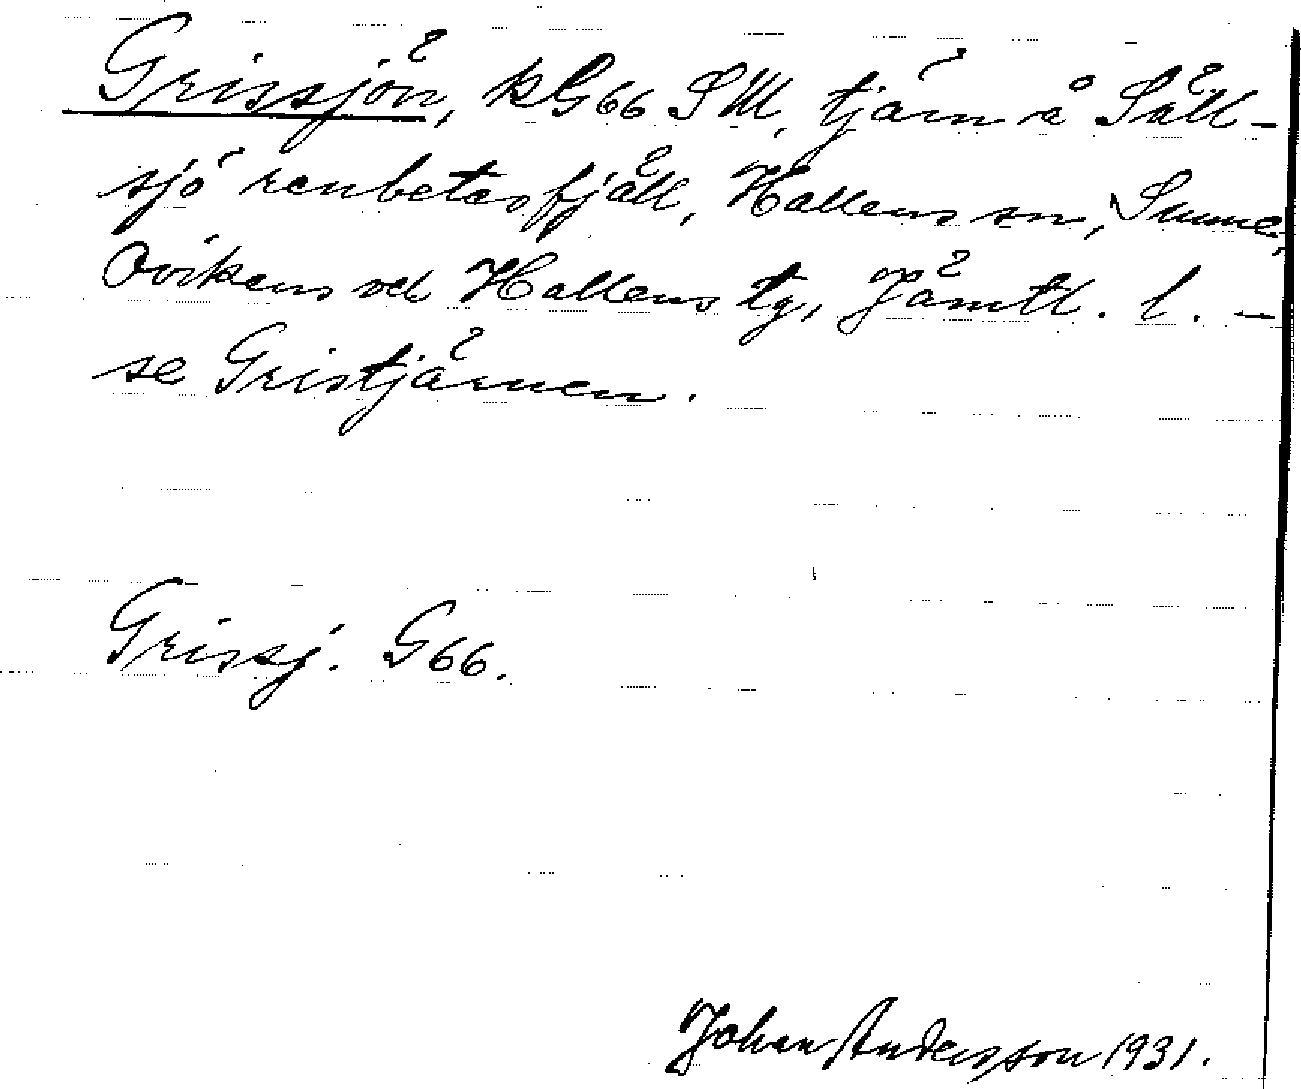 Grissjön, kG66 SW, tjärn å Säll-
sjö renbetesfjäll, Hallens sn, Sunne,
Ovikens och Hallens tg, Jämtl. l. -
se Gristjärnen.
Grissj. G66.
Johan Andersson 1931.